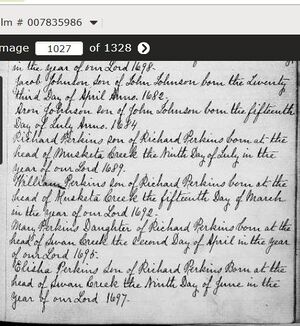 lm # 007835986
mage 1027 of 1328
in the year of our Lord 1698.
Jacob Johnson son of John Johnson born the Twenty
third Day of April Anno. 1682.
Aron Johnson son of John Johnson born the fifteenth
Day of July Anno. 1684
Richard Perkins son of Richard Perkins born at the
head of Musketa Creek the Ninth Day of July in the
year of our Lord 1689.
William Perkins son of Richard Perkins born at the
head of Musketa Creek the fifteenth Day of March
in the year of our Lord 1692.
Mary Perkins Daughter of Richard Perkins born at the
head of Swan Creek the Second Day of April in the year
of our Lord 1695.
Elisha Perkins son of Richard Perkins Born at the
head of Swan Creek the Ninth Day of June in the
year of our Lord 1697.